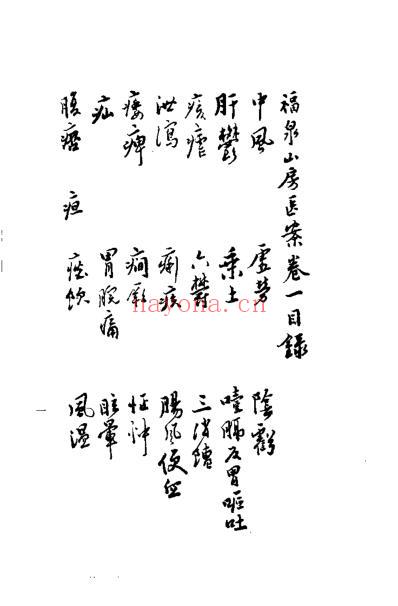 福泉山房医案卷一目錄
中風 虛勞 陰虧
肝鬱 乘土 噎膈反胃嘔吐
痎瘧 六鬱 三消
泄瀉 痢疾 腸風便血
痿痺 癎厥 怔忡
疝 胃脘痛 眩暈
腹痞 疸 痰飲 風溫
一
hayona.cn